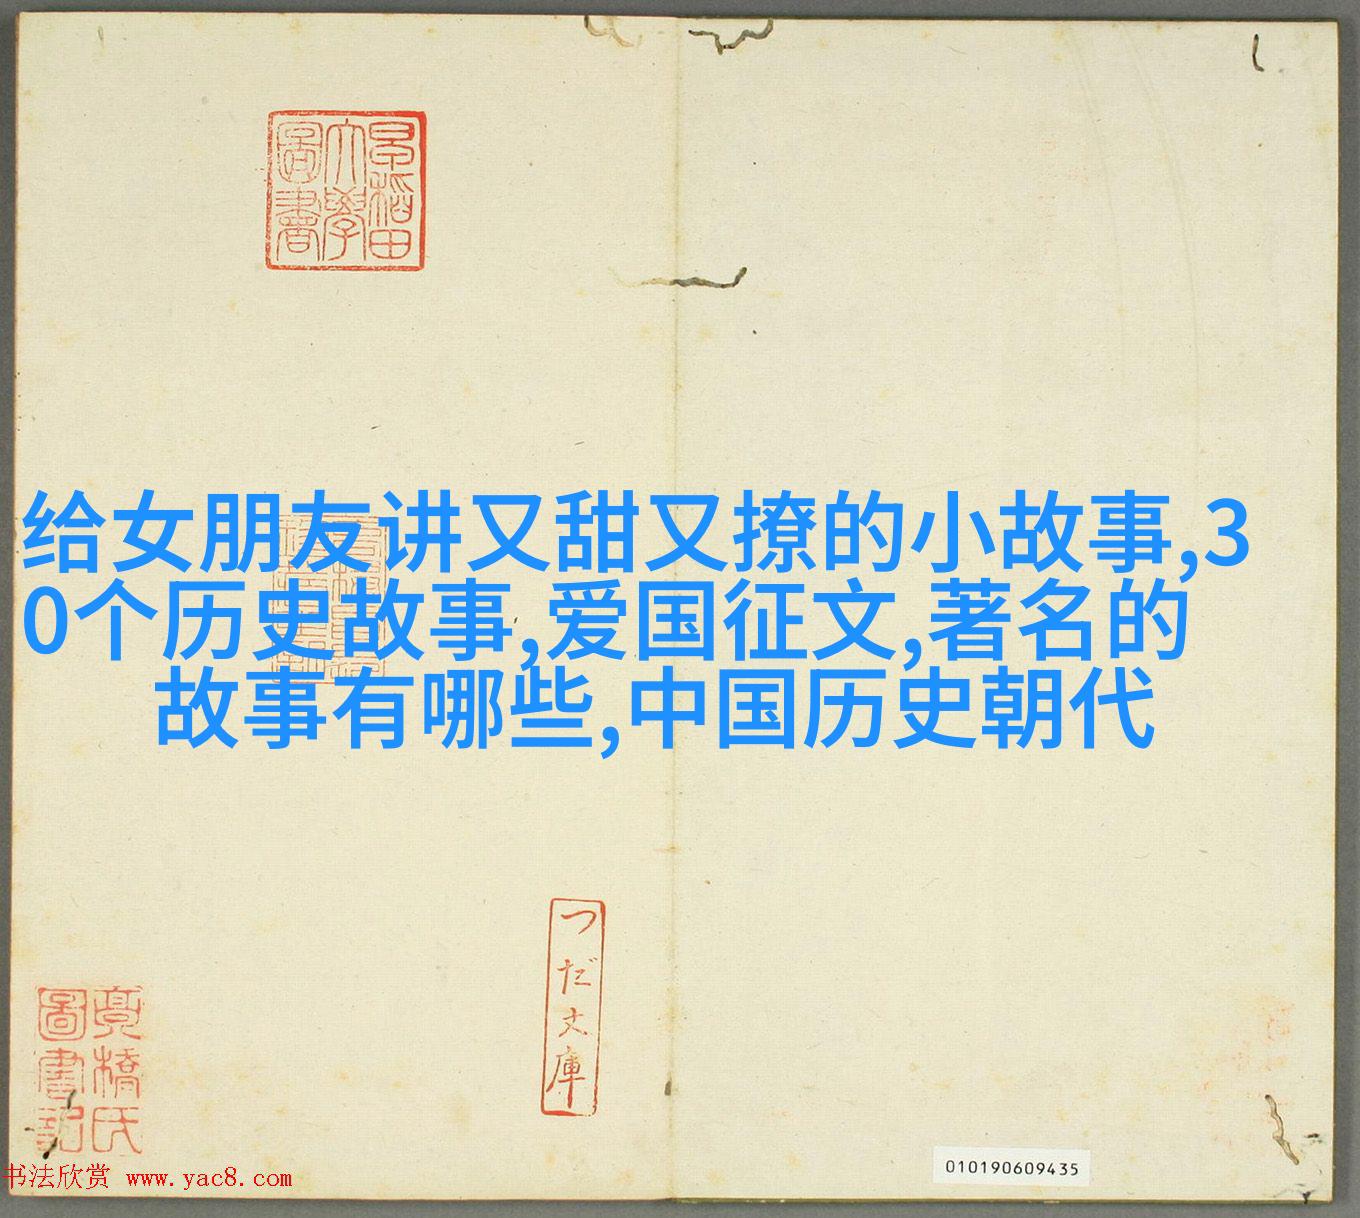 早稻田
大學
圖書
给女朋友讲又甜又撩的小故事,3
0个历史故事,爱国征文,著名的
故事有哪些,中国历史朝代
つだ文庫
橋氏
圖書記
010190609435
书法欣赏 www.yac8.com